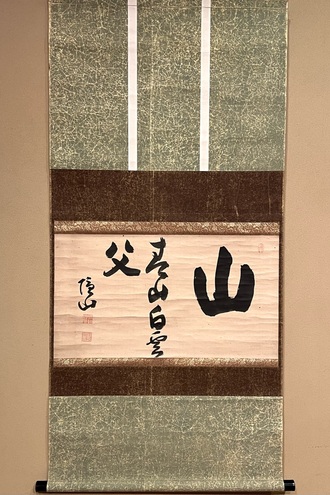 山
青山白雲
父
隱山